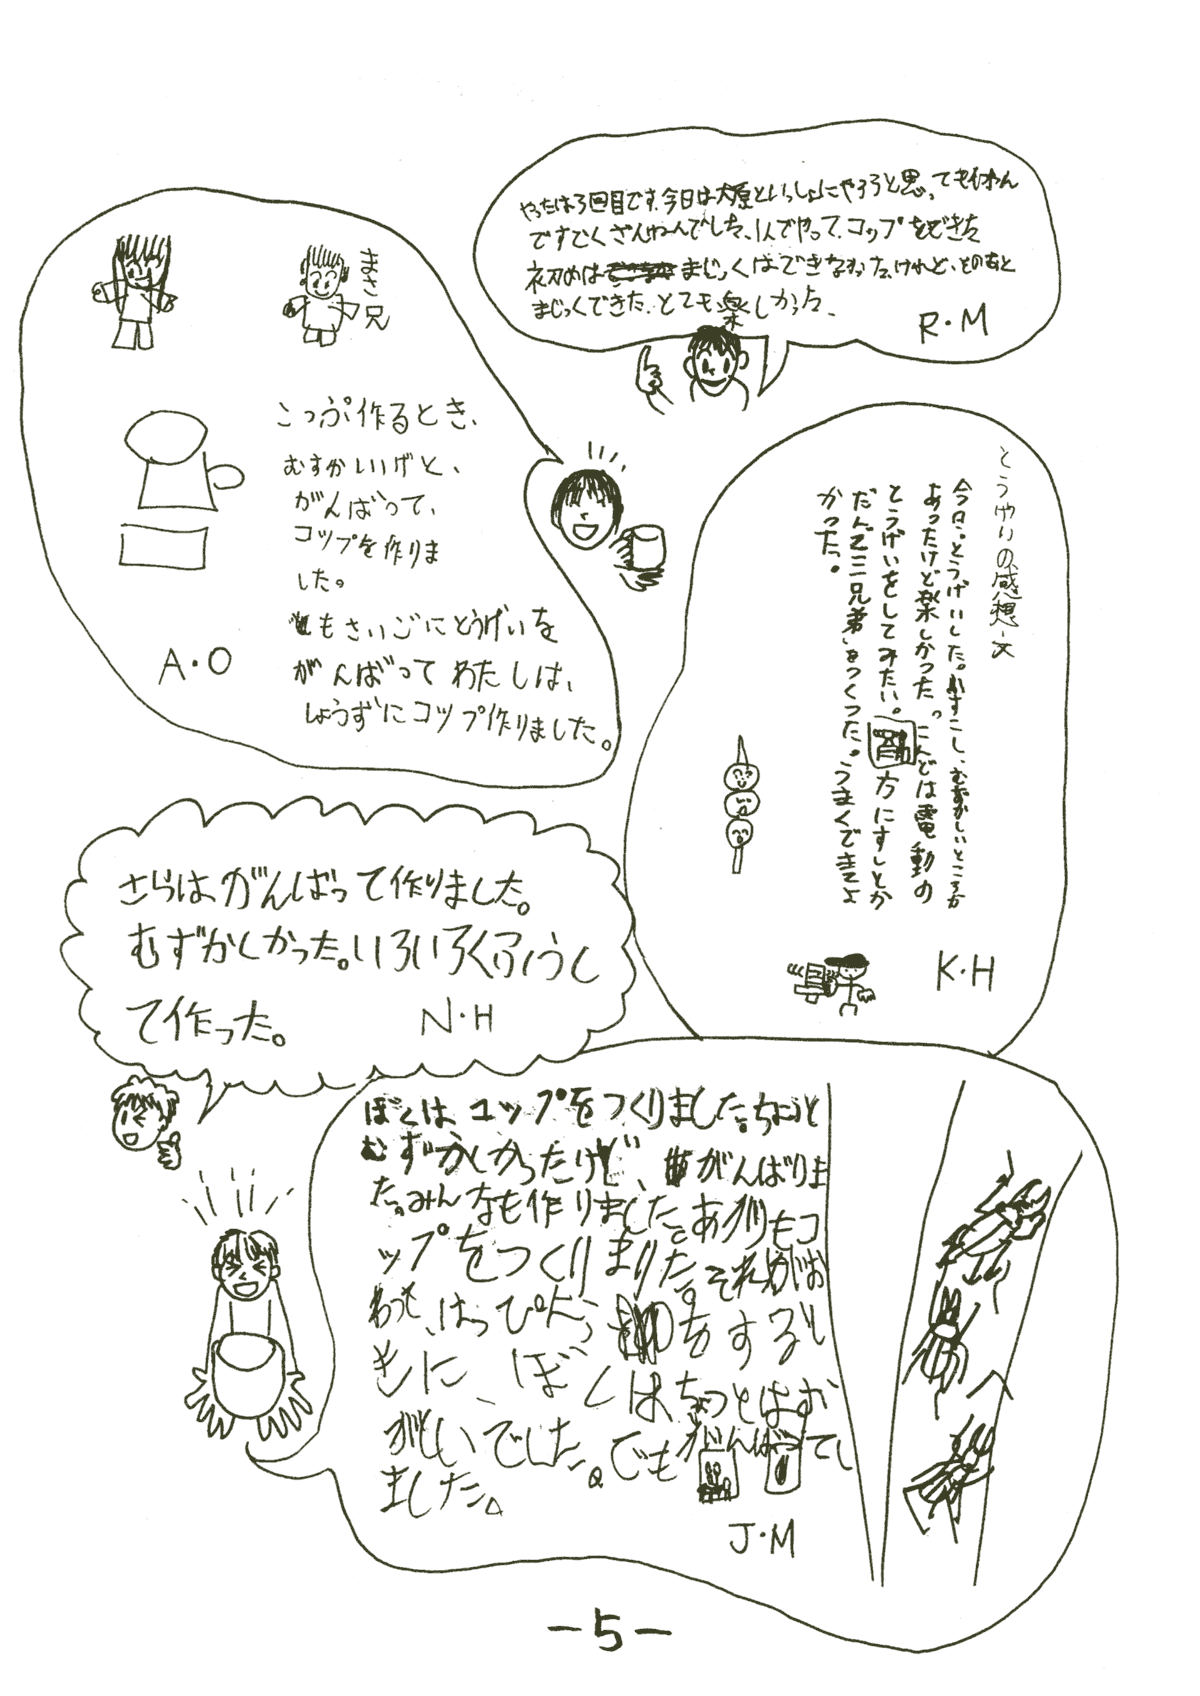 やったは3回目です、今日は大原といっしょにやろうと思ってもむわん
ですごくざんねんでした、1人でやって、コップをできた
初めは まじっくはできなかった、けれど、そのあと
まじっくできた、とても楽しかった、
R・M
まさ兄
こっぷ作るとき、
むすかしいけど、
がんばって、
コップを作りま
した。
もさいごにとうげいを
がんばってわたしは、
じょうずにコップ作りました。
A・O
とうげいの感想文
今日、とうげいした。すこし、むずかしいところが
あったけど楽しかった。こんどは電動の
とうげいをしてみたい。 方にすしとか
だんご三兄弟をつくった。うまくできてよ
かった。
K・H
さらは、がんばって作りました。
むずかしかった。いろいろくふうし
て作った。
N・H
ぼくは、コップをつくりました。ちょっと
むずかしかったけど、 がんばりま
た。みんなも作りました。 もコ
ップをつくりまりた。それがお
わっても、はっぴょう をするじ
もに、ぼくは、ちょっとはお
でした。でも がんばってし
ました。
J・M
－5－